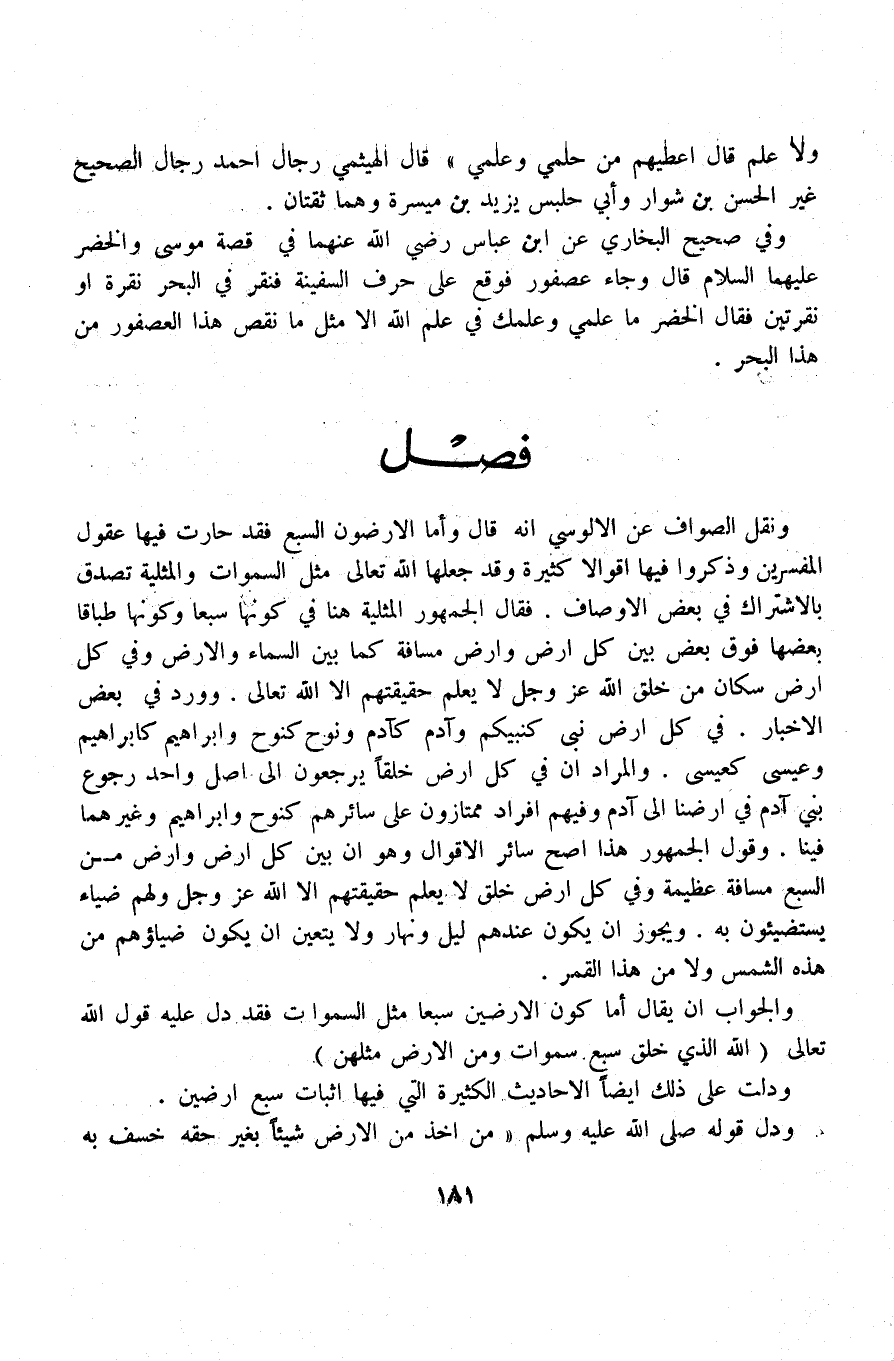 ولا علم قال اعطيهم من حلمي وعلمي » قال الهيثمي رجال احمد رجال الصحيح
غير الحسن بن شوار وأبي حلبس يزيد بن ميسرة وهما ثقتان .
وفي صحيح البخاري عن ابن عباس رضي الله عنهما في قصة موسى والخضر
عليهما السلام قال وجاء عصفور فوقع على حرف السفينة فنقر في البحر نقرة او
نقرتين فقال الخضر ما علمي وعلمك في علم الله الا مثل ما نقص هذا العصفور من
هذا البحر .
فصل
ونقل الصواف عن الالوسي انه قال وأما الارضون السبع فقد حارت فيها عقول
المفسرين وذكروا فيها اقوالا كثيرة وقد جعلها الله تعالى مثل السموات والمثلية تصدق
بالاشتراك في بعض الاوصاف . فقال الجمهور المثلية هنا في كونها سبعا وكونها طباقا
بعضها فوق بعض بين كل ارض وارض مسافة كما بين السماء والارض وفي كل
ارض سكان من خلق الله عز وجل لا يعلم حقيقتهم الا الله تعالى . وورد في بعض
الاخبار . في كل ارض نبى كنبيكم وآدم كآدم ونوح كنوح وابراهيم كابراهيم
وعيسى كعيسى . والمراد ان في كل ارض خلقاً يرجعون الى اصل واحد رجوع
بني آدم في ارضنا الى آدم وفيهم افراد ممتازون على سائرهم كنوح وابراهيم وغيرهما
فينا . وقول الجمهور هذا اصح سائر الاقوال وهو ان بين كل ارض وارض مـــن
السبع مسافة عظيمة وفي كل ارض خلق لا يعلم حقيقتهم الا الله عز وجل ولهم ضياء
يستضيئون به . ويجوز ان يكون عندهم ليل ونهار ولا يتعين ان يكون ضياؤهم من
هذه الشمس ولا من هذا القمر .
والجواب ان يقال أما كون الارضين سبعا مثل السموات فقد دل عليه قول الله
تعالى ( الله الذي خلق سبع سموات ومن الارض مثلهن )
ودلت على ذلك ايضاً الاحاديث الكثيرة التي فيها اثبات سبع ارضين .
ودل قوله صلى الله عليه وسلم « من اخذ من الارض شيئاً بغير حقه خسف به
١٨١